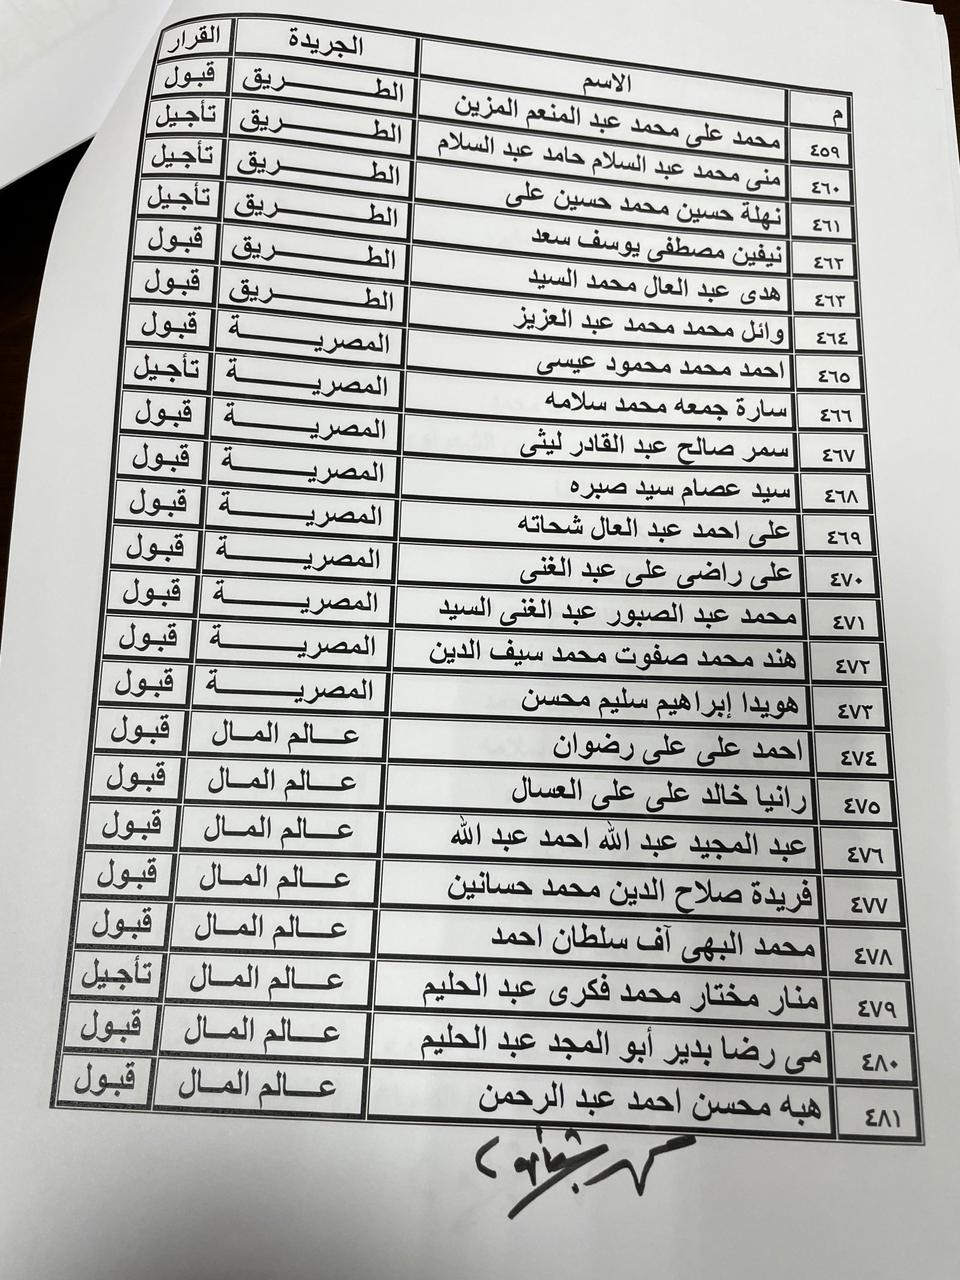 م الاسم الجريدة القرار
٤٥٩ محمد على محمد عبد المنعم المزين الطـــــريق قبول
٤٦٠ منى محمد عبد السلام حامد عبد السلام الطـــــريق تأجيل
٤٦١ نهلة حسين محمد حسين على الطـــــريق تأجيل
٤٦٢ نيفين مصطفى يوسف سعد الطـــــريق تأجيل
٤٦٣ هدى عبد العال محمد السيد الطـــــريق قبول
٤٦٤ وائل محمد محمد عبد العزيز الطـــــريق قبول
٤٦٥ احمد محمد محمود عيسى المصريـــــة قبول
٤٦٦ سارة جمعه محمد سلامه المصريـــــة تأجيل
٤٦٧ سمر صالح عبد القادر ليثى المصريـــــة قبول
٤٦٨ سيد عصام سيد صبره المصريـــــة قبول
٤٦٩ على احمد عبد العال شحاته المصريـــــة قبول
٤٧٠ على راضى على عبد الغنى المصريـــــة قبول
٤٧١ محمد عبد الصبور عبد الغنى السيد المصريـــــة قبول
٤٧٢ هند محمد صفوت محمد سيف الدين المصريـــــة قبول
٤٧٣ هويدا إبراهيم سليم محسن المصريـــــة قبول
٤٧٤ احمد على على رضوان عـــالم المـال قبول
٤٧٥ رانيا خالد على على العسال عـــالم المـال قبول
٤٧٦ عبد المجيد عبد الله احمد عبد الله عـــالم المـال قبول
٤٧٧ فريدة صلاح الدين محمد حسانين عـــالم المـال قبول
٤٧٨ محمد البهى آف سلطان احمد عـــالم المـال قبول
٤٧٩ منار مختار محمد فكرى عبد الحليم عـــالم المـال تأجيل
٤٨٠ مى رضا بدير أبو المجد عبد الحليم عـــالم المـال قبول
٤٨١ هبه محسن احمد عبد الرحمن عـــالم المـال قبول